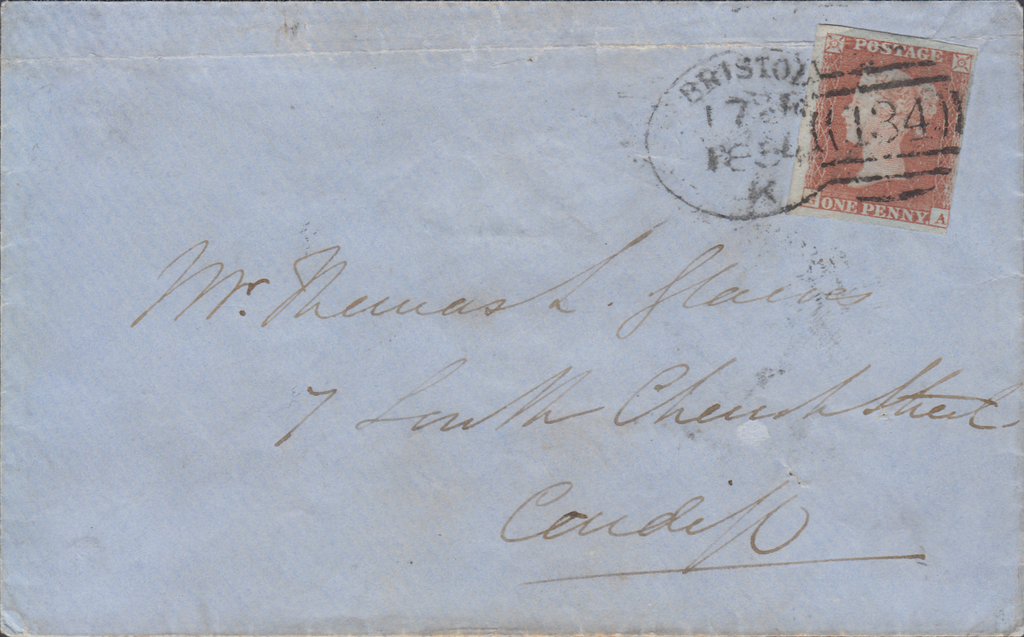 BRISTOL
17
1854
K
POSTAGE
134
ONE PENNY A
Mr. Thomas L. Glaves
7 South Church Street
Cardiff